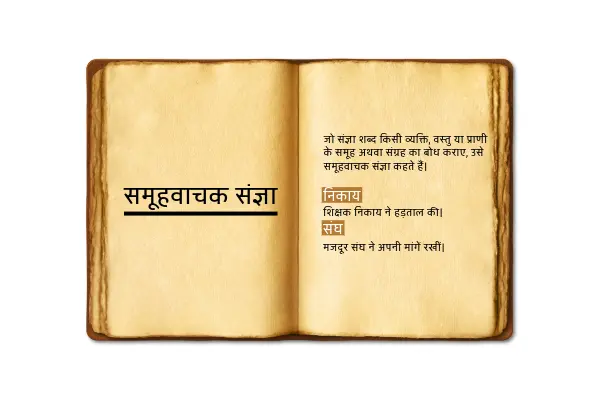 समूहवाचक संज्ञा
जो संज्ञा शब्द किसी व्यक्ति, वस्तु या प्राणी
के समूह अथवा संग्रह का बोध कराए, उसे
समूहवाचक संज्ञा कहते हैं।
निकाय
शिक्षक निकाय ने हड़ताल की।
संघ
मजदूर संघ ने अपनी मांगें रखीं।